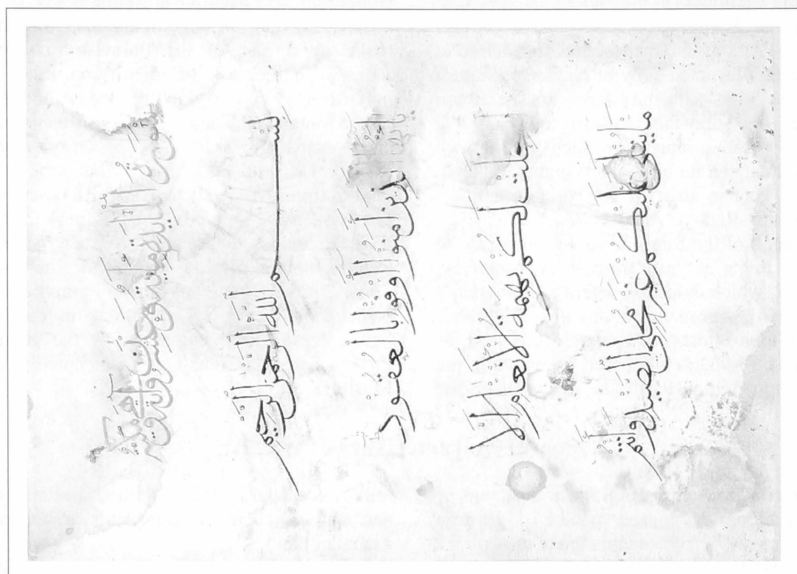 سورة المائدة
بسم الله الرحمن الرحيم
يايها الذين امنوا اوفوا بالعقود
احلت لكم بهيمة الانعام الا
ما يتلى عليكم غير محلى الصيد وانتم